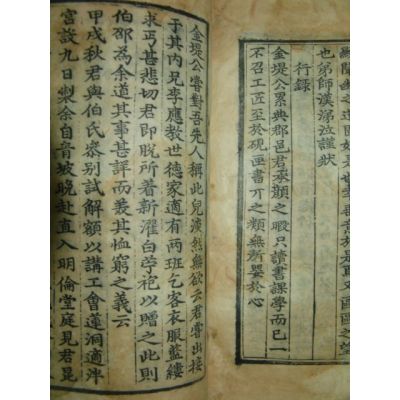 區區之望
也弟師漢涕泣謹狀
行錄
金堤公累典郡邑君承顏之暇只讀書課學而已一
不召工匠至於硯匣書丌之類無所嬰於心
金堤公嘗對吾先人稱此兒淡然無欲云君嘗出接
于其內兄李應教世德家適有两班乞客衣服藍縷
求丐甚悲切君即脫所着新濯白学袍以贈之此則
伯邵為余道其事甚詳而義其恤窮之義云
甲戌秋君與伯氏叅别試解額以講工會蓮洞適泮
宮設九日製余自音坡晩赴直入明倫堂庭見君昆